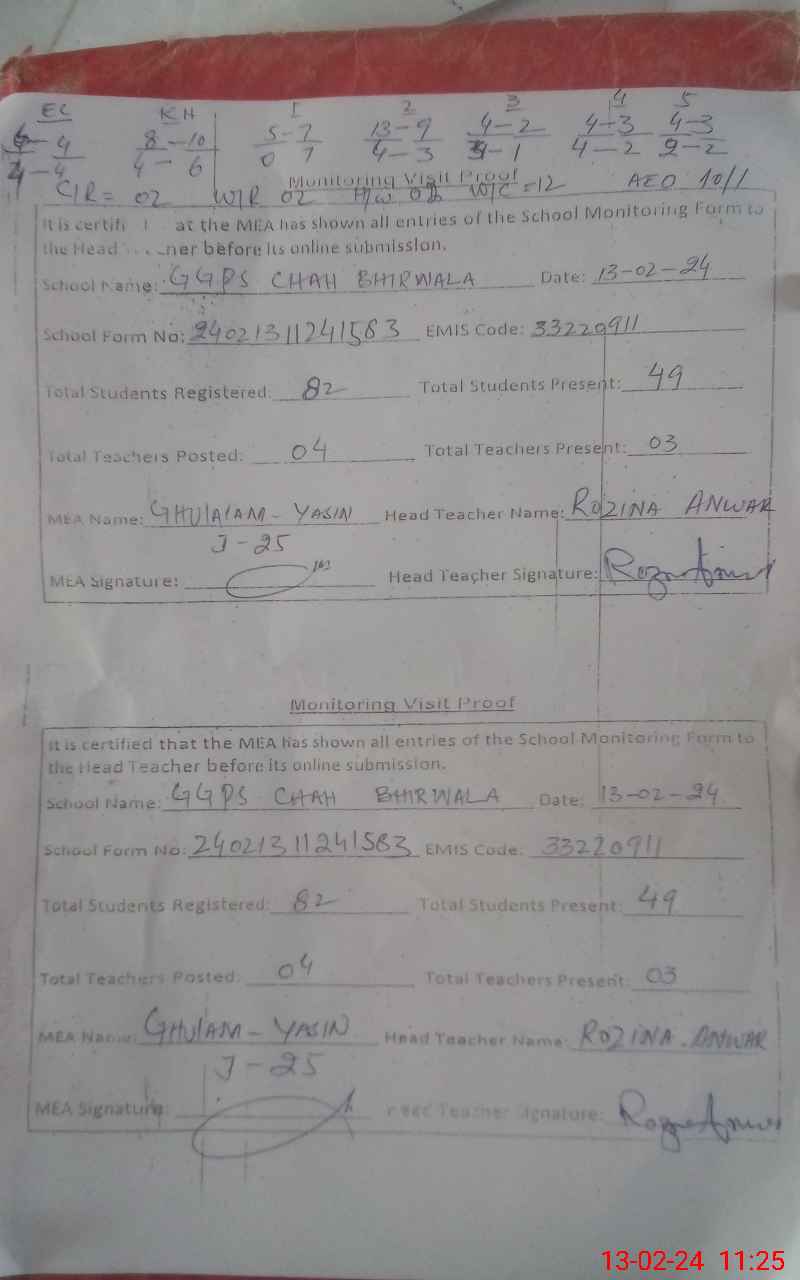 EC KH 1 2 3 4 5
4 8-10 5-7 13-9 4-2 4-3 4-3
4-4 4- 6 0 7 4-3 -1 4-2 2-2
Monitoring Visit Proof
CIR= 02 W/R 02 H/W W/C =12 AEO 10/1
It is certifi at the MEA has shown all entries of the School Monitoring Form to
the Head ner before its online submission.
School Name: GGPS CHAH BHIRWALA Date: 13-02-24
School Form No: 24021311241583 EMIS Code: 33220911
Total Students Registered: 82 Total Students Present: 49
Total Teachers Posted: 04 Total Teachers Present: 03
MEA Name: GHULAM-YASIN Head Teacher Name: ROZINA ANWAR
J-25
MEA Signature: Head Teacher Signature:
Monitoring Visit Proof
It is certified that the MEA has shown all entries of the School Monitoring Form to
the Head Teacher before its online submission.
School Name: GGPS CHAH BHIRWALA Date: 13-02-24
School Form No: 24021311241583 EMIS Code: 33220911
Total Students Registered: 82 Total Students Present: 49
Total Teachers Posted: 04 Total Teachers Present: 03
MEA Name: GHULAM-YASIN Head Teacher Name: ROZINA.ANWAR
J-25
MEA Signature: Head Teacher Signature:
13-02-24 11:25